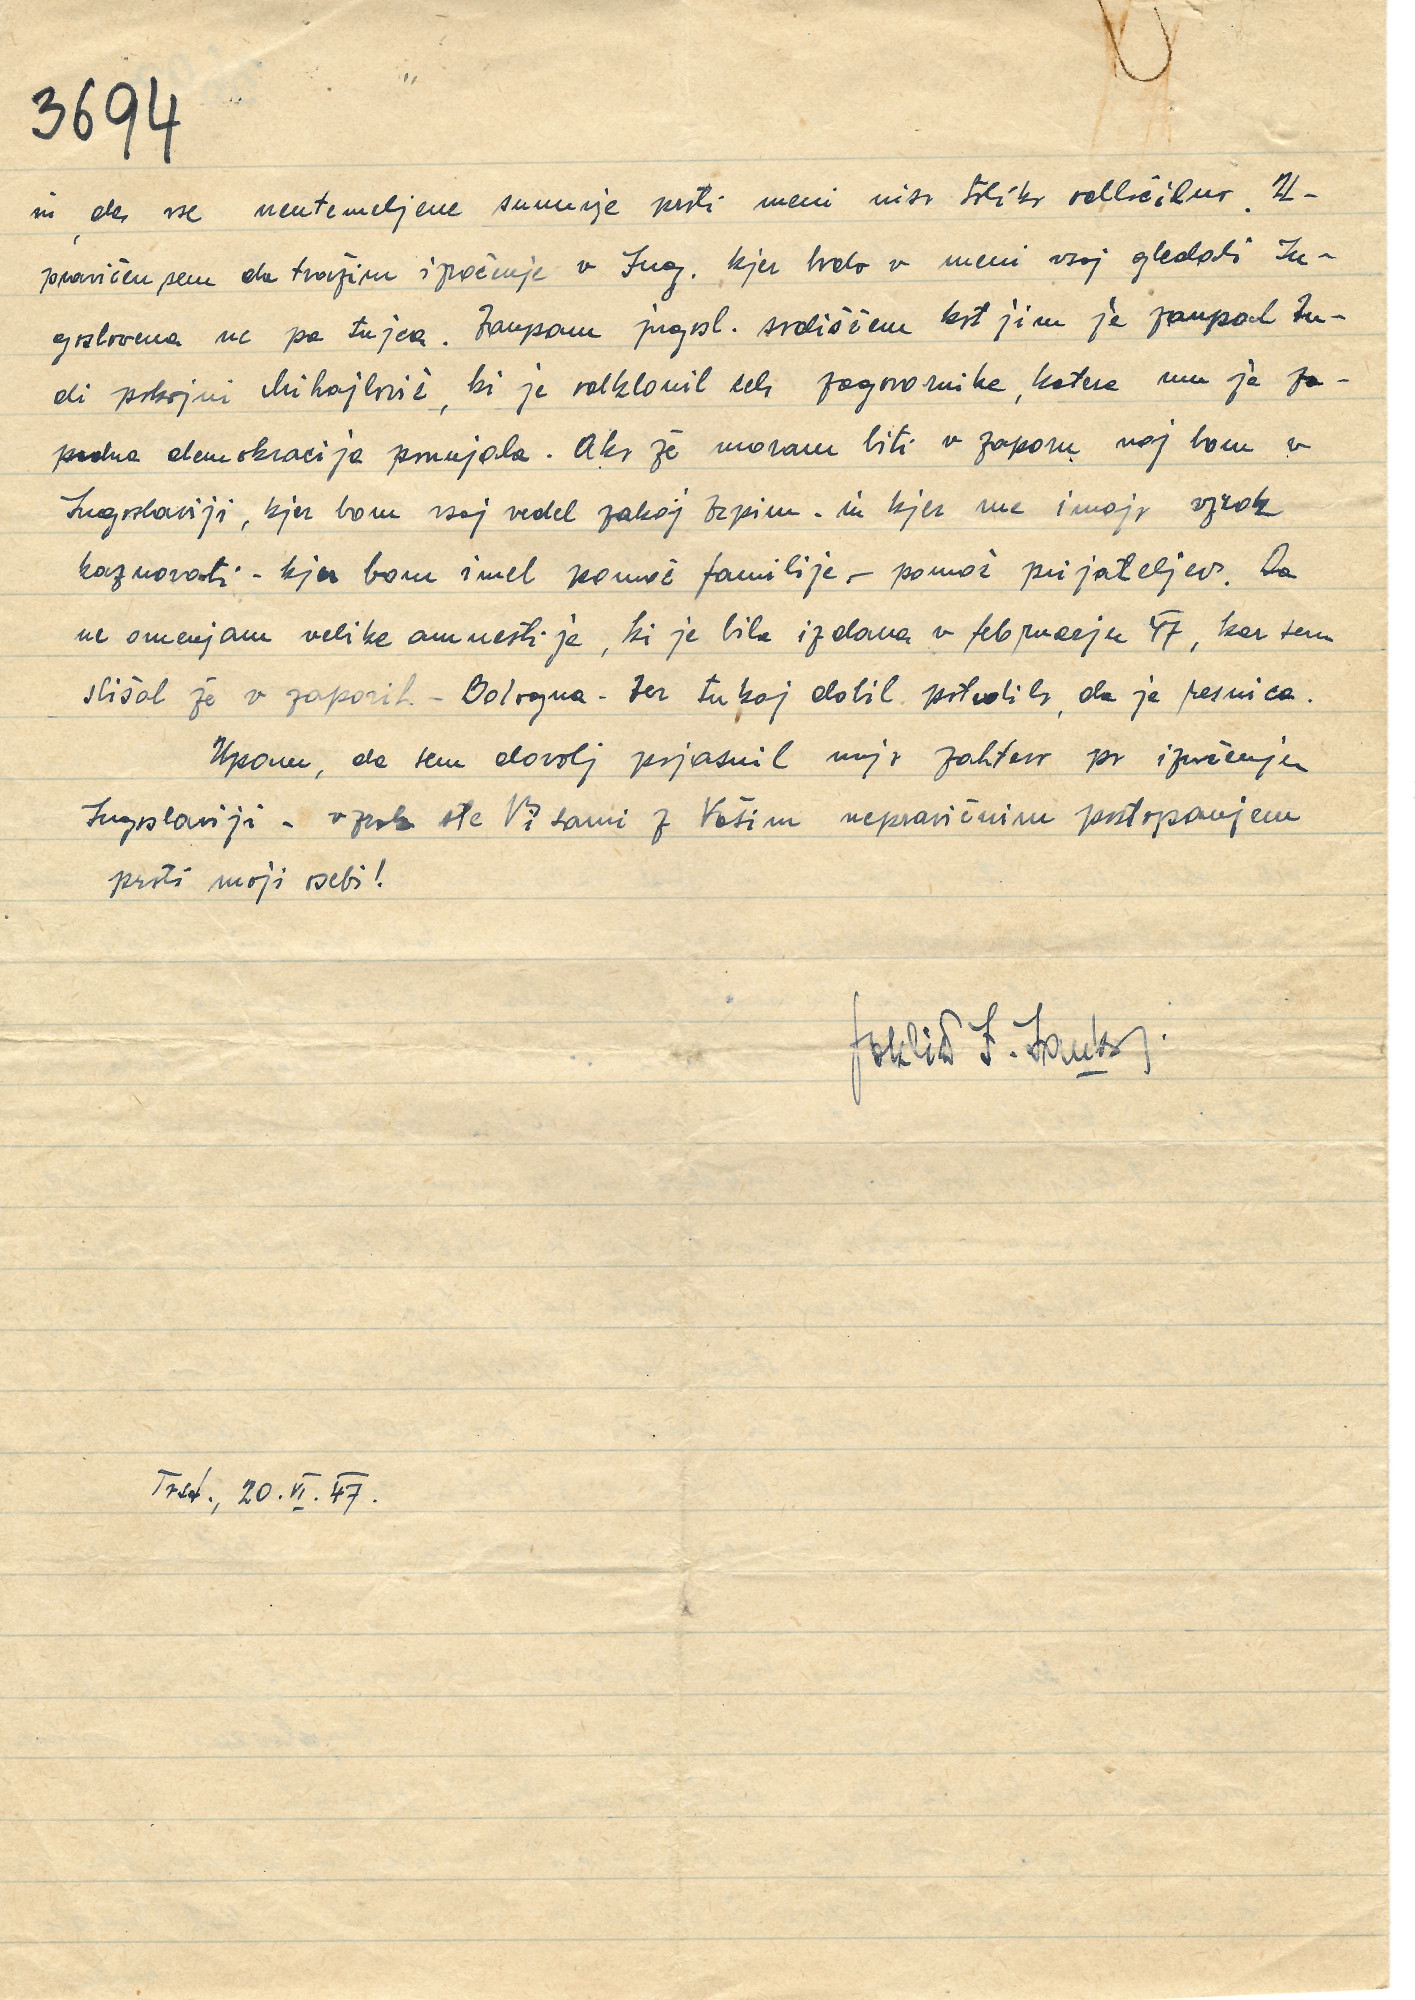 3694
in, da vse neutemeljene sumnje proti meni niso toliko odločilno. U-
pravičen sem da tražim izročenje v Jug. kjer bodo v meni vsaj gledali Ju-
goslovena ne pa tujca. Zaupam jugosl. sodiščem kot jim je zaupal tu-
di pokojni Mihajlovič, ki je odklonil celo zagovornike, katere mu je za-
padna demokracija ponujala. Ako že moram biti v zaporu naj bom v
Jugoslaviji, kjer bom vsaj vedel zakaj trpim - in kjer me imajo vzrok
kaznovati - kjer bom imel pomoč familije - pomoč prijateljev. Da
ne omenjam velike amnestije, ki je bila izdana v februarju 47, kar sem
slišal že v zaporih - Bologna - ter tukaj dobil potrdilo, da je resnica.
Upam, da sem dovolj pojasnil mojo zahtevo po izročenju
Jugoslaviji - vzrok ste Vi sami z Vašim nepravičnim postopanjem
proti moji osebi!
Joklič F. Janko
Trst., 20.VI.47.